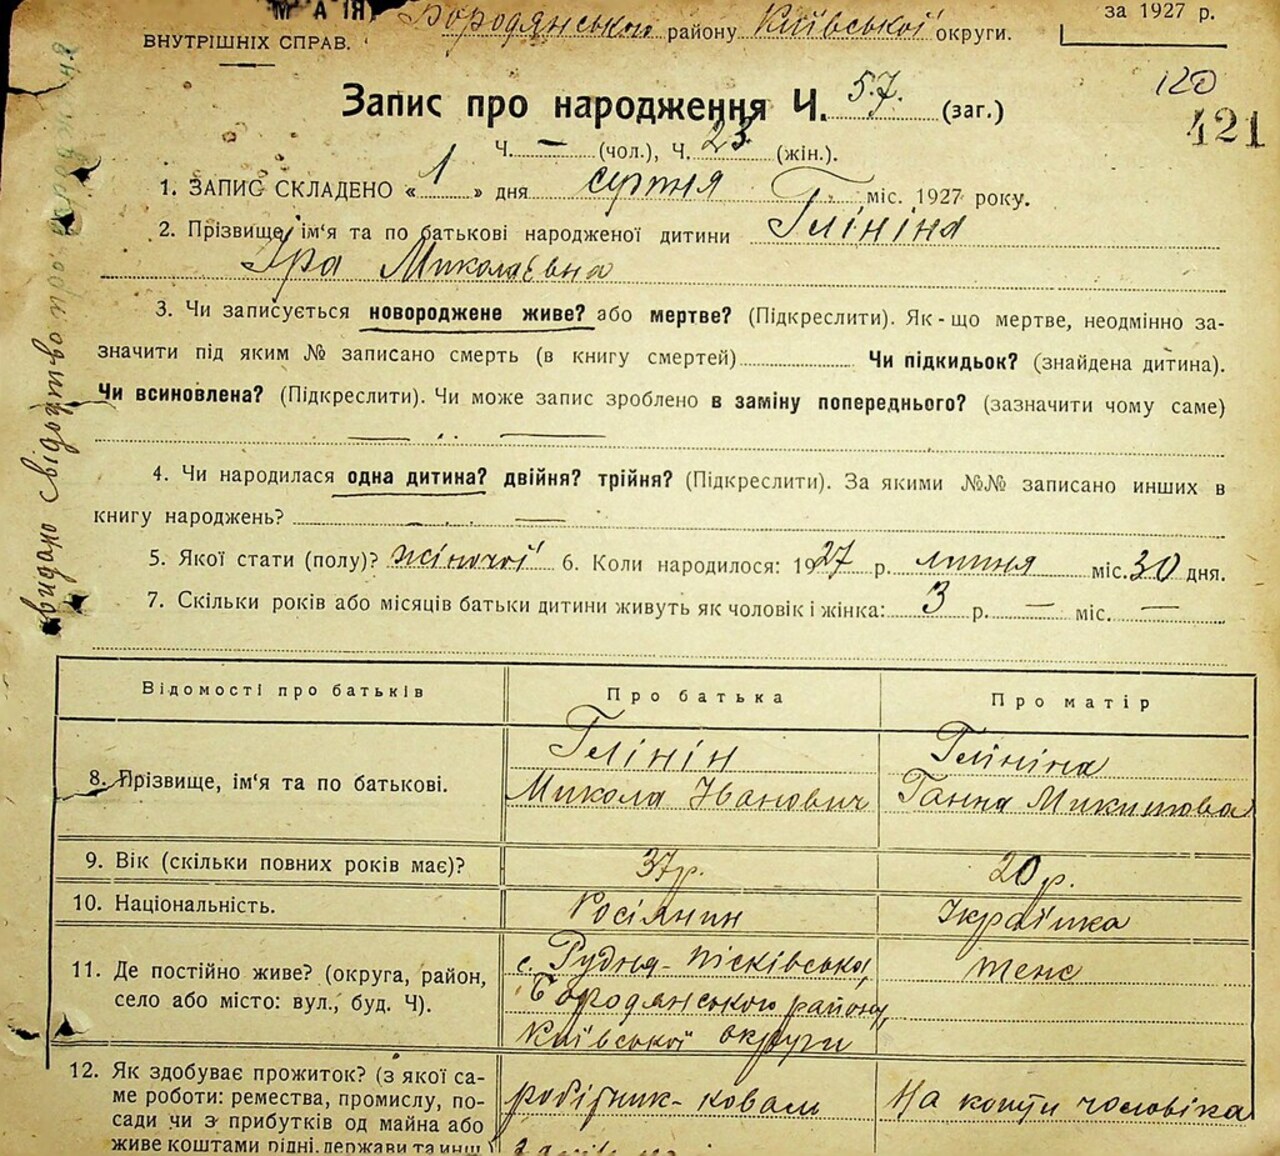 за 1927 р.
Бородянського району Київської округи.
ВНУТРІШНІХ СПРАВ.
120
421
Запис про народження Ч. 57. (заг.)
Ч. — (чол.), Ч. 23. (жін.).
1. ЗАПИС СКЛАДЕНО «1» дня серпня міс. 1927 року.
2. Прізвище, ім'я та по батькові народженої дитини Глініна
Іра Миколаївна
3. Чи записується новороджене живе? або мертве? (Підкреслити). Як-що мертве, неодмінно за-
значити під яким № записано смерть (в книгу смертей) Чи підкидьок? (знайдена дитина).
Чи всиновлена? (Підкреслити). Чи може запис зроблено в заміну попереднього? (зазначити чому саме)
4. Чи народилася одна дитина? двійня? трійня? (Підкреслити). За якими №№ записано инших в
книгу народжень?
5. Якої статі (полу)? жіночої 6. Коли народилося: 1927 р. липня міс. 30 дня.
7. Скільки років або місяців батьки дитини живуть як чоловік і жінка: 3 р. — міс. —
видано свідотство
Відомості про батьків Про батька Про матір
8. Прізвище, ім'я та по батькові. Глінін Глініна
Микола Іванович Ганна Микитова
9. Вік (скільки повних років має)? 37 р. 20 р.
10. Національність. Росіянин Українка
11. Де постійно живе? (округа, район, с. Рудня-Пісківська, теж
село або місто: вул., буд. Ч). Бородянського району,
Київської округи
12. Як здобуває прожиток? (з якої са-
ме роботи: ремества, промислу, по- робітник-коваль На кошти чоловіка
сади чи з прибутків од майна або
живе коштами рідні, держави та инш.)